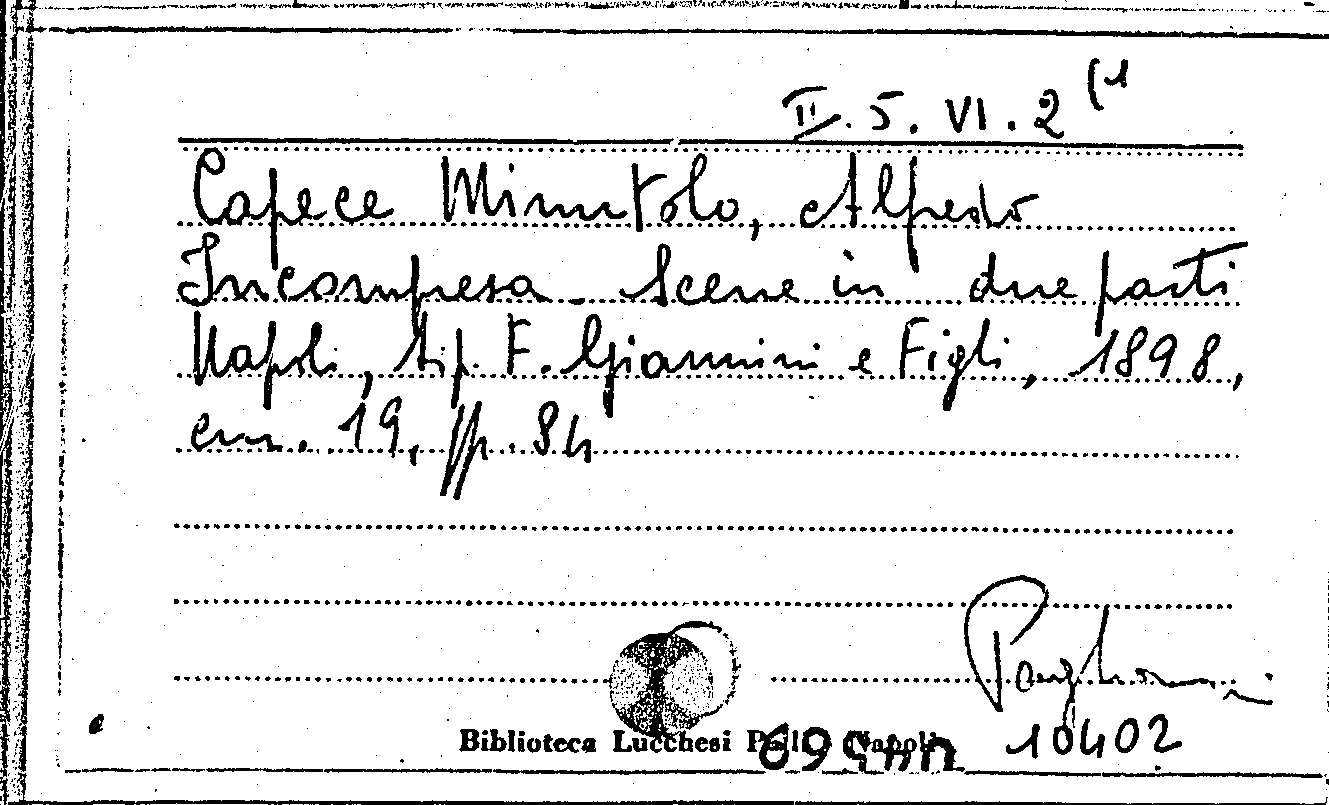 II. 5. VI. 2 (1
Capece Minutolo, Alfredo
Incompresa. Scene in due parti
Napoli, tip. F. Giannini e Figli, 1898,
cm. 19, pp. 84
Biblioteca Lucchesi Palli Napoli
10402